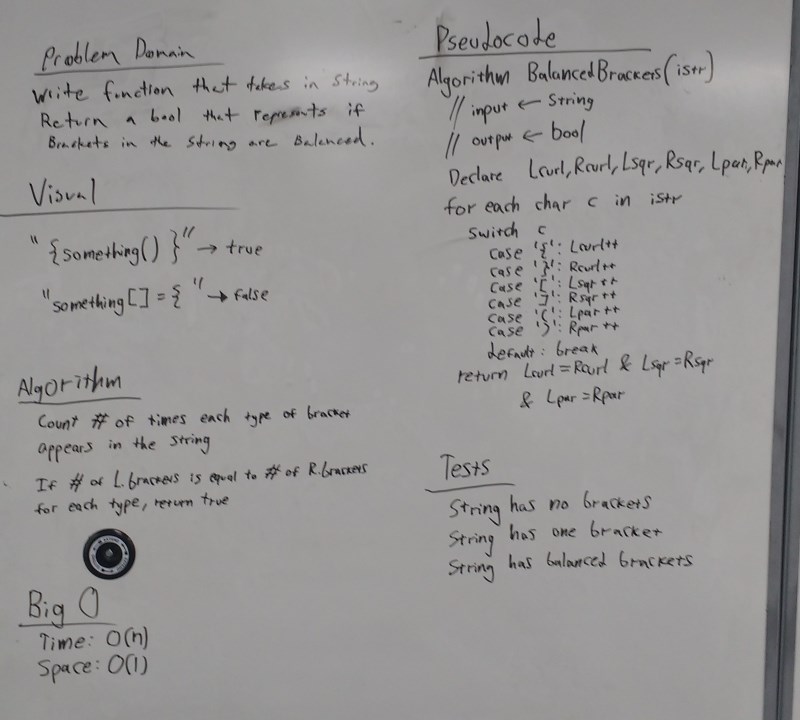 Problem Domain
Write function that takes in String
Return a bool that represents if
Brackets in the String are Balanced.
Visual
"{something() }" → true
"something[] = { " → false
Algorithm
Count # of times each type of bracket
appears in the string
If # of L.brackets is equal to # of R.brackets
for each type, return true
Big O
Time: O(n)
Space: O(1)
Pseudocode
Algorithm BalancedBrackets(istr)
// input ← String
// output ← bool
Declare Lcurl, Rcurl, Lsqr, Rsqr, Lpar, Rpar
for each char c in istr
switch c
case '{': Lcurl++
case '}': Rcurl++
case '[': Lsqr++
case ']': Rsqr++
case '(': Lpar++
case ')': Rpar++
default: break
return Lcurl = Rcurl & Lsqr = Rsqr
& Lpar = Rpar
Tests
String has no brackets
String has one bracket
String has balanced brackets